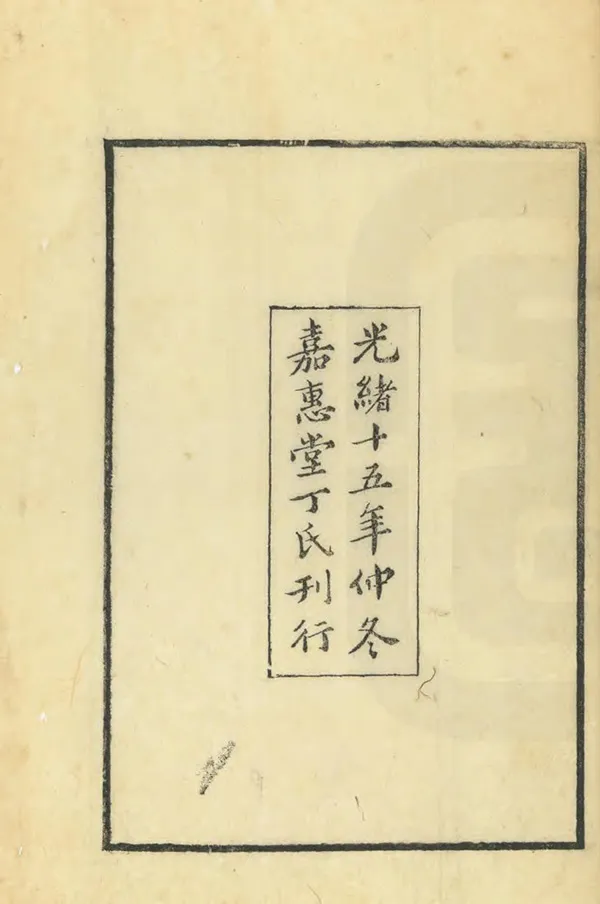 光緒十五年仲冬
嘉惠堂丁氏刊行